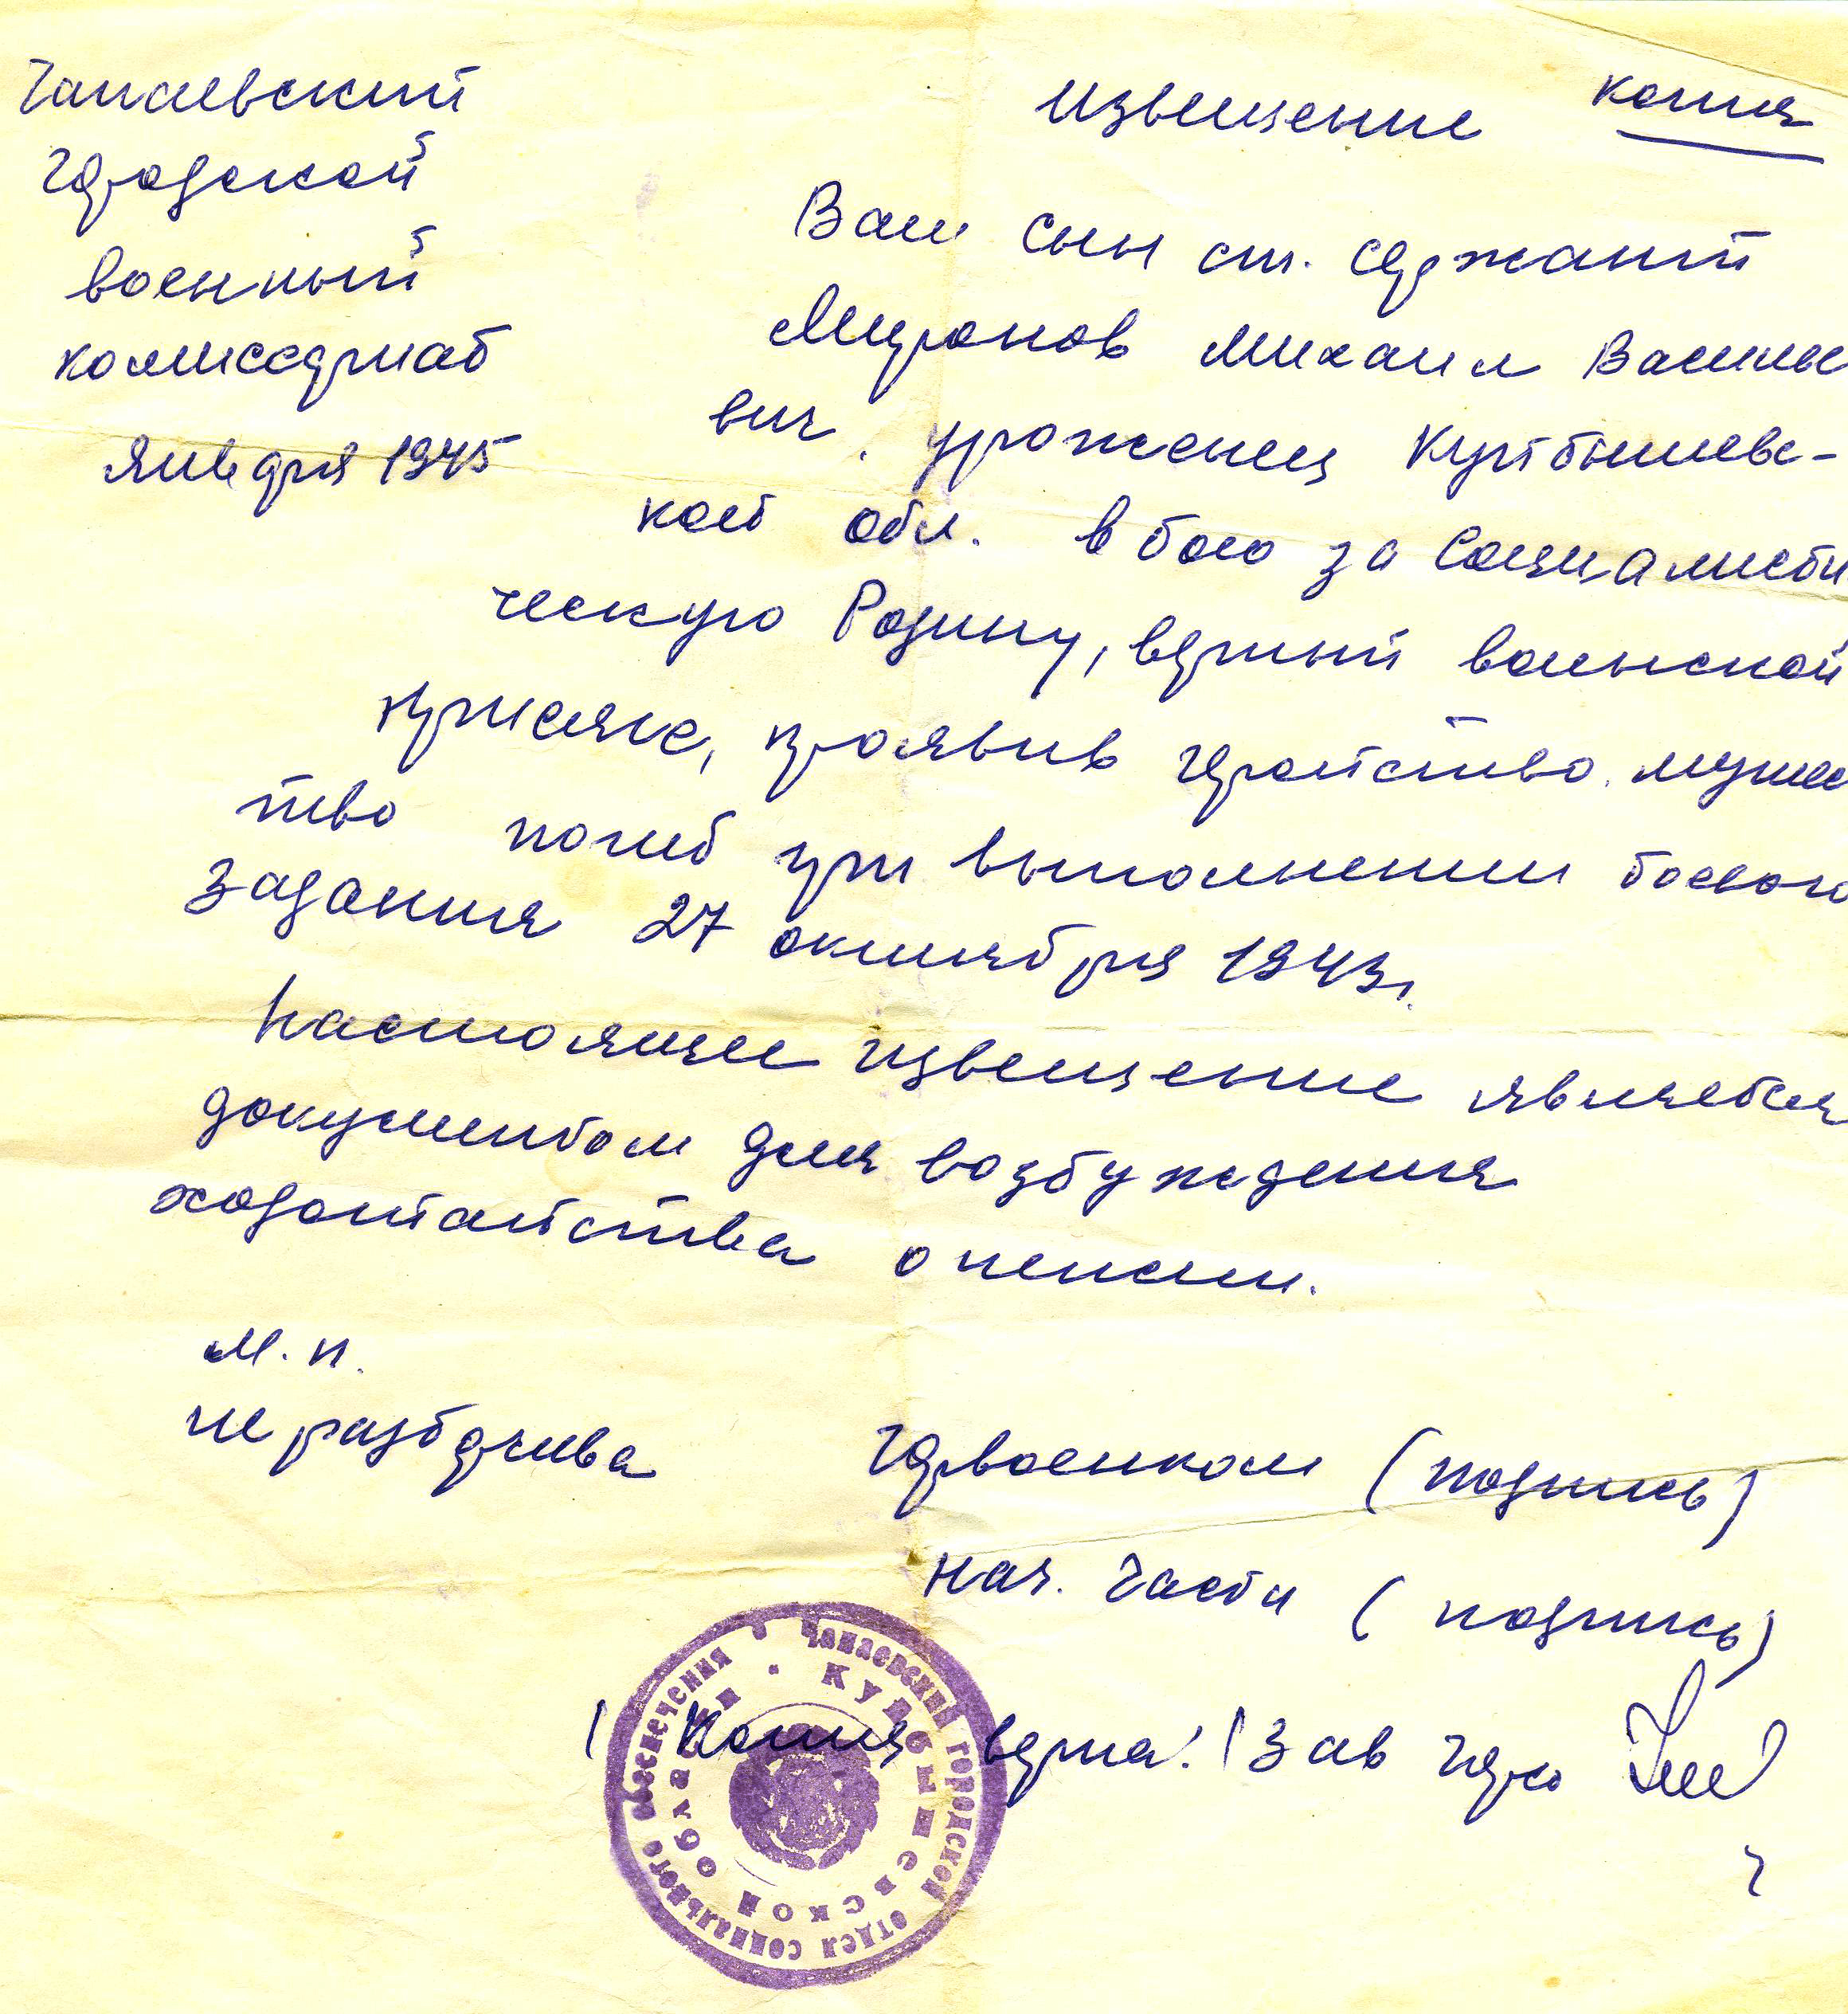 Чапаевский
городской
военный
комиссариат
января 1945
извещение копия
Ваш сын ст. сержант
Миронов Михаил Василье
вич. уроженец Куйбышевс-
кой обл. в бою за Социалисти
ческую Родину, верный воинской
присяге, проявив геройство. мужес
тво погиб при выполнении боевого
задания 27 октября 1943 г.
Настоящее извещение является
документом для возбуждения
ходатайства о пенсии.
м. п.
не разборчива
горвоенком (подпись)
нач. части (подпись)
Копия верна! Зав горсо
Чапаевский городской отдел социального обеспечения
Куйбышевской области